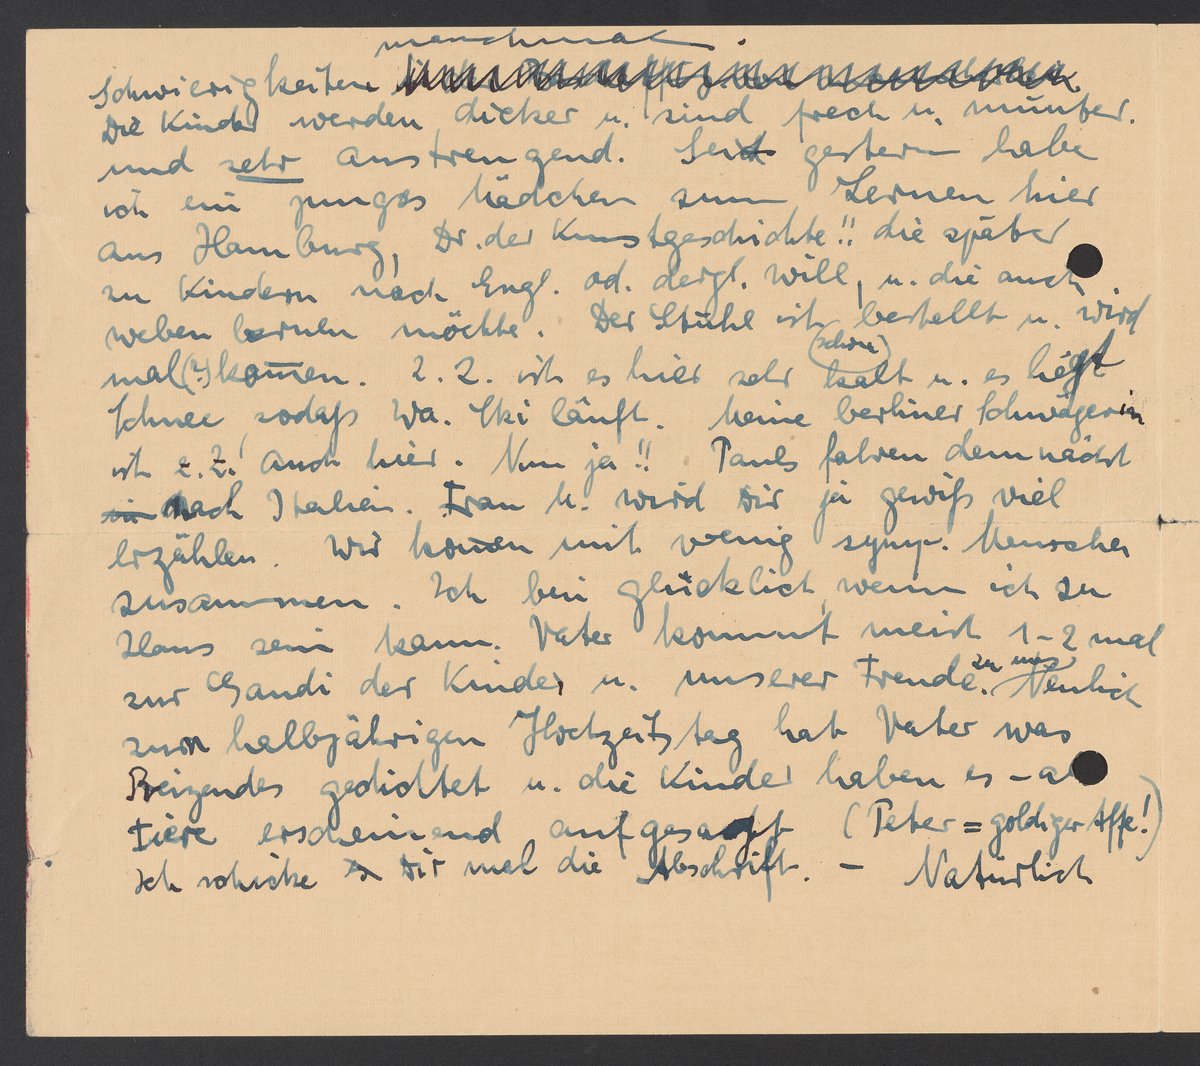 manchmal.
Schwierigkeiten
Die Kinder werden dicker u. sind frech u. munter.
und sehr anstrengend. Seit gestern habe
ich ein junges Mädchen zum Lernen hier
aus Hamburg, Dr. der Kunstgeschichte!! die später
zu Kindern nach Engl. od. dergl. will, u. die auch
weben lernen möchte. Der Stuhl ist bestellt u. wird
mal (?) kom̅en. Z. Z. ist es hier sehr (schön) kalt u. es liegt
Schnee, sodaß Wa. Ski läuft. Meine berliner Schwägerin
ist z. Z. auch hier. Nun ja!! Pauls fahren demnächst
in nach Italien. Frau M. wird Dir ja gewiß viel
erzählen. Wir kom̅en mit wenig symp. Menschen
zusammen. Ich bin glücklich, wenn ich zu
Haus sein kann. Vater kommt meist 1-2 mal
zur Gaudi der Kinder u. unserer Freude zu uns. Neulich
zum halbjährigen Hochzeitstag hat Vater was
Reizendes gedichtet u. die Kinder haben es – als
Tiere erscheinend aufgesagt (Peter = goldiger Affe!)
Ich schicke Dir mal die Abschrift. – Natürlich